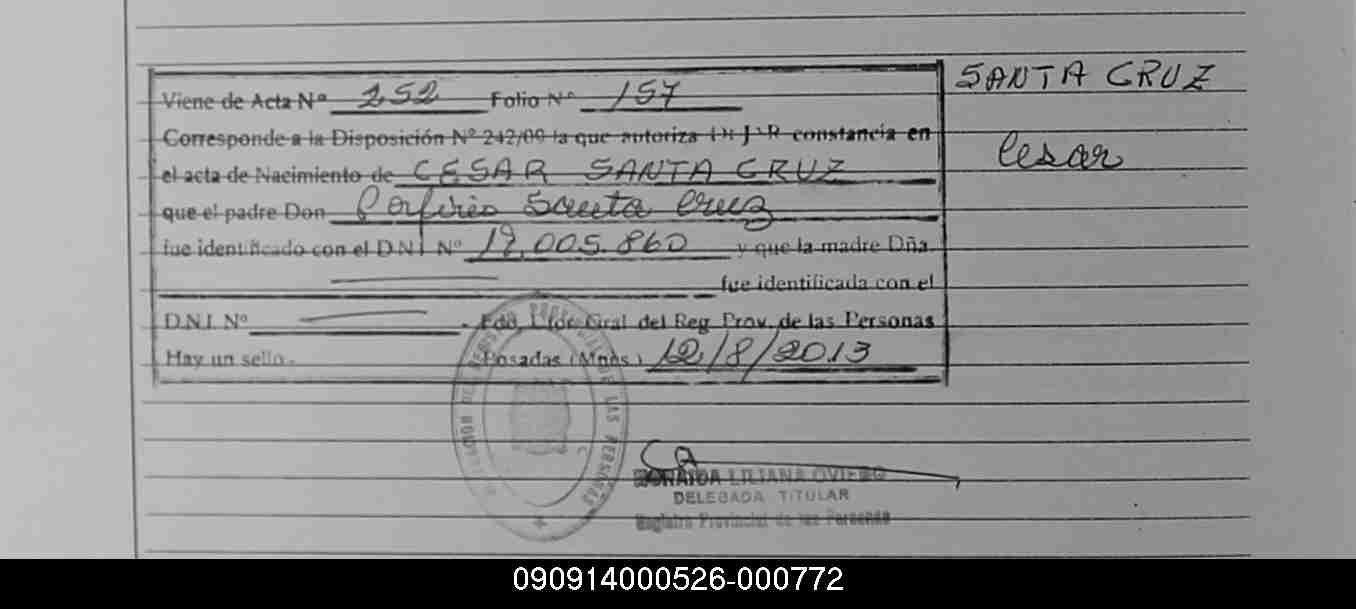 Viene de Acta Nº 252 Folio Nº 157 SANTA CRUZ
Corresponde a la Disposición Nº 242/09 la que autoriza DEJAR constancia en
el acta de Nacimiento de CESAR SANTA CRUZ Cesar
que el padre Don Porfirio Santa Cruz
fue identificado con el D.N.I Nº 17.005.860 y que la madre Dña.
fue identificada con el
D.N.I. Nº - Fdo, Dtor. Gral del Reg Prov. de las Personas
Hay un sello.- Posadas (Mnes.) 12/8/2013
LILIANA OVIEDO
DELEGADA TITULAR
Registro Provincial de las Personas
DE LAS PERSONAS
090914000526-000772